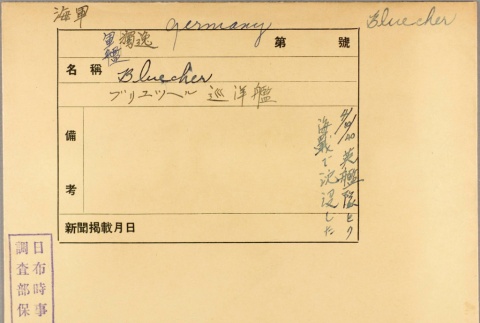 海軍
Germany
Bluecher
軍艦
獨逸
第 號
名稱
Bluecher
ブリユツヘル 巡洋艦
備考
英艦隊と
海戰で沈没した
新聞掲載月日
日布時事
調査部保